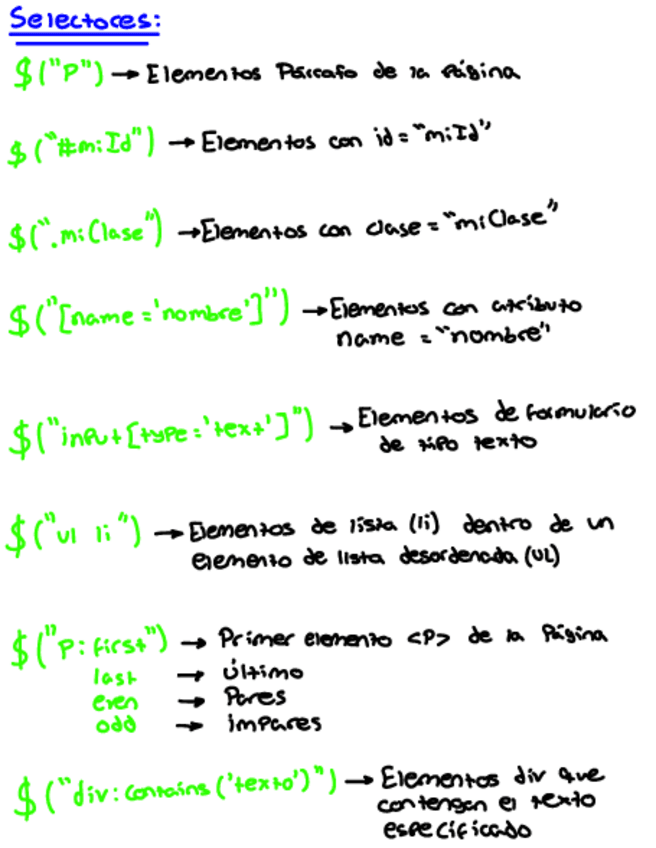 Selectores:
$("P") → Elementos Párrafo de la Página
$("#miId") → Elementos con id = "miId"
$(".miClase") → Elementos con clase = "miClase"
$("[name='nombre']") → Elementos con atributo
name = "nombre"
$("input[type='text']") → Elementos de formulario
de tipo texto
$("ul li") → Elementos de lista (li) dentro de un
elemento de lista desordenada (UL)
$("P:first") → Primer elemento <P> de la Página
last → Último
even → Pares
odd → impares
$("div:contains('texto')") → Elementos div que
contengan el texto
especificado